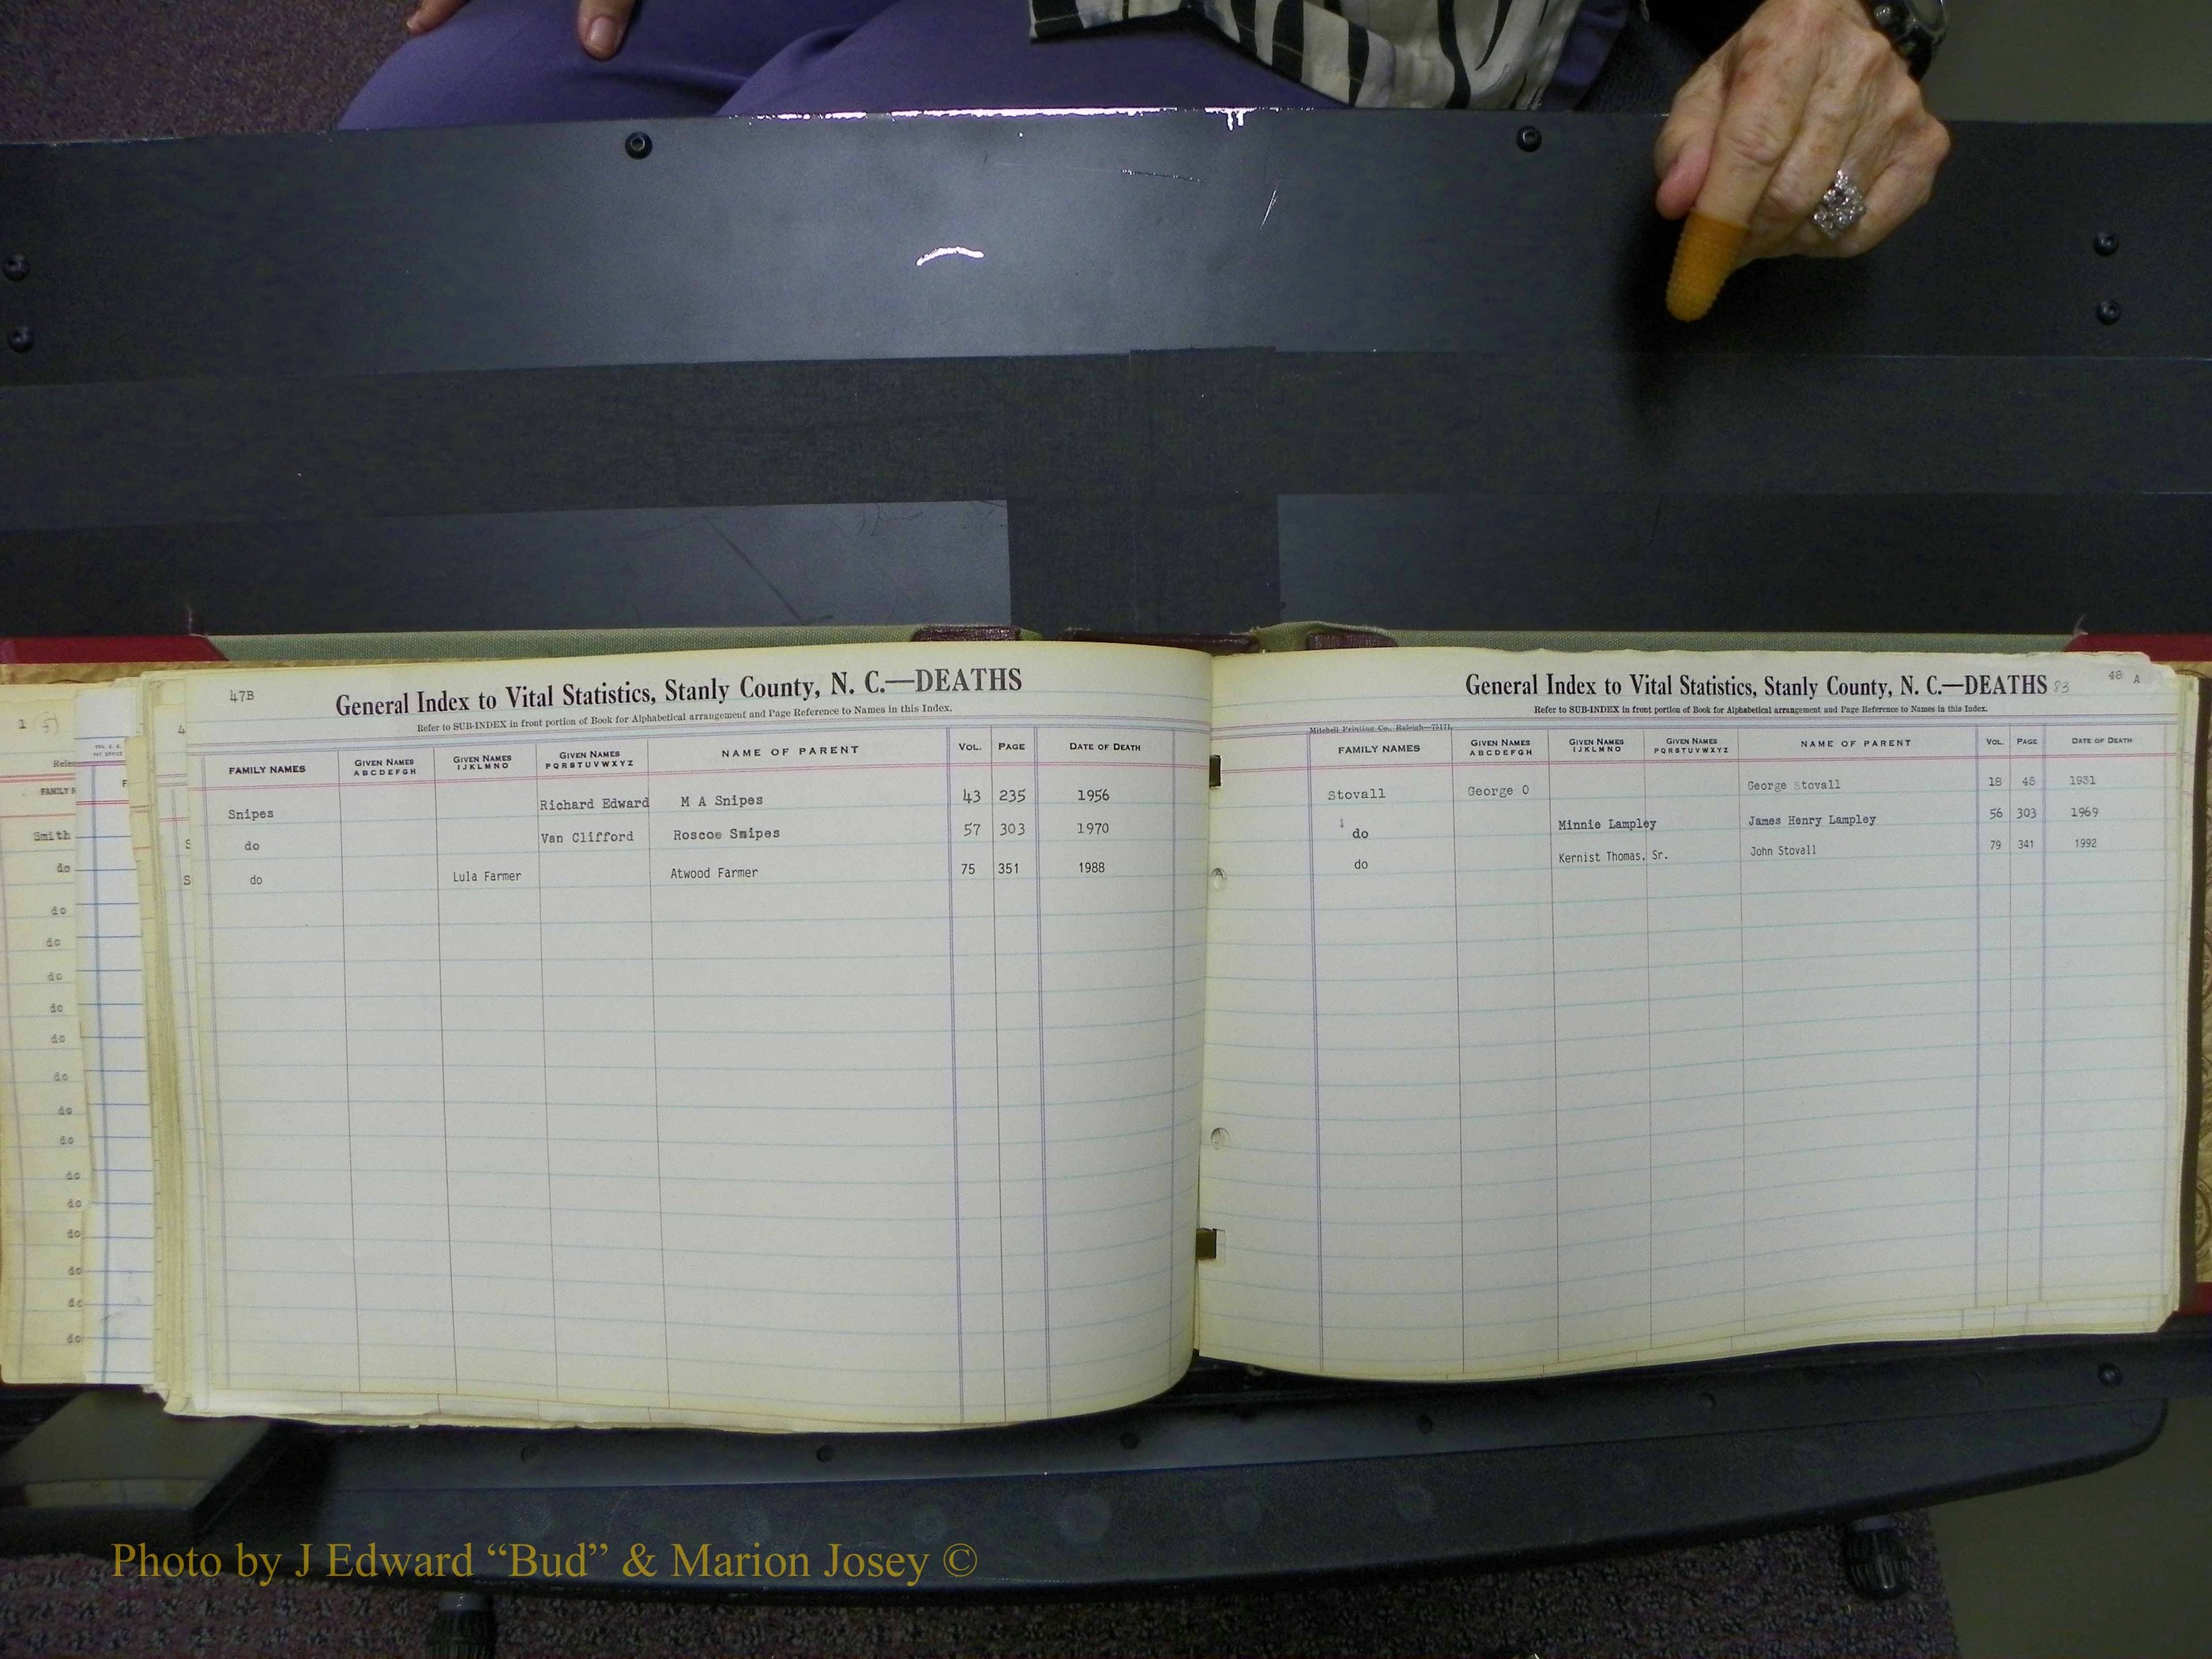 47B
General Index to Vital Statistics, Stanly County, N. C.—DEATHS
Refer to SUB-INDEX in front portion of Book for Alphabetical arrangement and Page Reference to Names in this Index.
FAMILY NAMES GIVEN NAMES ABCDEFGH GIVEN NAMES IJKLMNO GIVEN NAMES PQRSTUVWXYZ NAME OF PARENT VOL. PAGE DATE OF DEATH
Snipes Richard Edward M A Snipes 43 235 1956
do Van Clifford Roscoe Snipes 57 303 1970
do Lula Farmer Atwood Farmer 75 351 1988
48 A
General Index to Vital Statistics, Stanly County, N. C.—DEATHS 83
Refer to SUB-INDEX in front portion of Book for Alphabetical arrangement and Page Reference to Names in this Index.
Mitchell Printing Co., Raleigh—75171.
FAMILY NAMES GIVEN NAMES ABCDEFGH GIVEN NAMES IJKLMNO GIVEN NAMES PQRSTUVWXYZ NAME OF PARENT VOL. PAGE DATE OF DEATH
Stovall George O George Stovall 18 45 1931
do Minnie Lampley James Henry Lampley 56 303 1969
do Kernist Thomas, Sr. John Stovall 79 341 1992
1
FAMILY N
Smith
do
do
do
do
do
do
do
do
do
do
do
do
do
do
do
Photo by J Edward “Bud” & Marion Josey ©